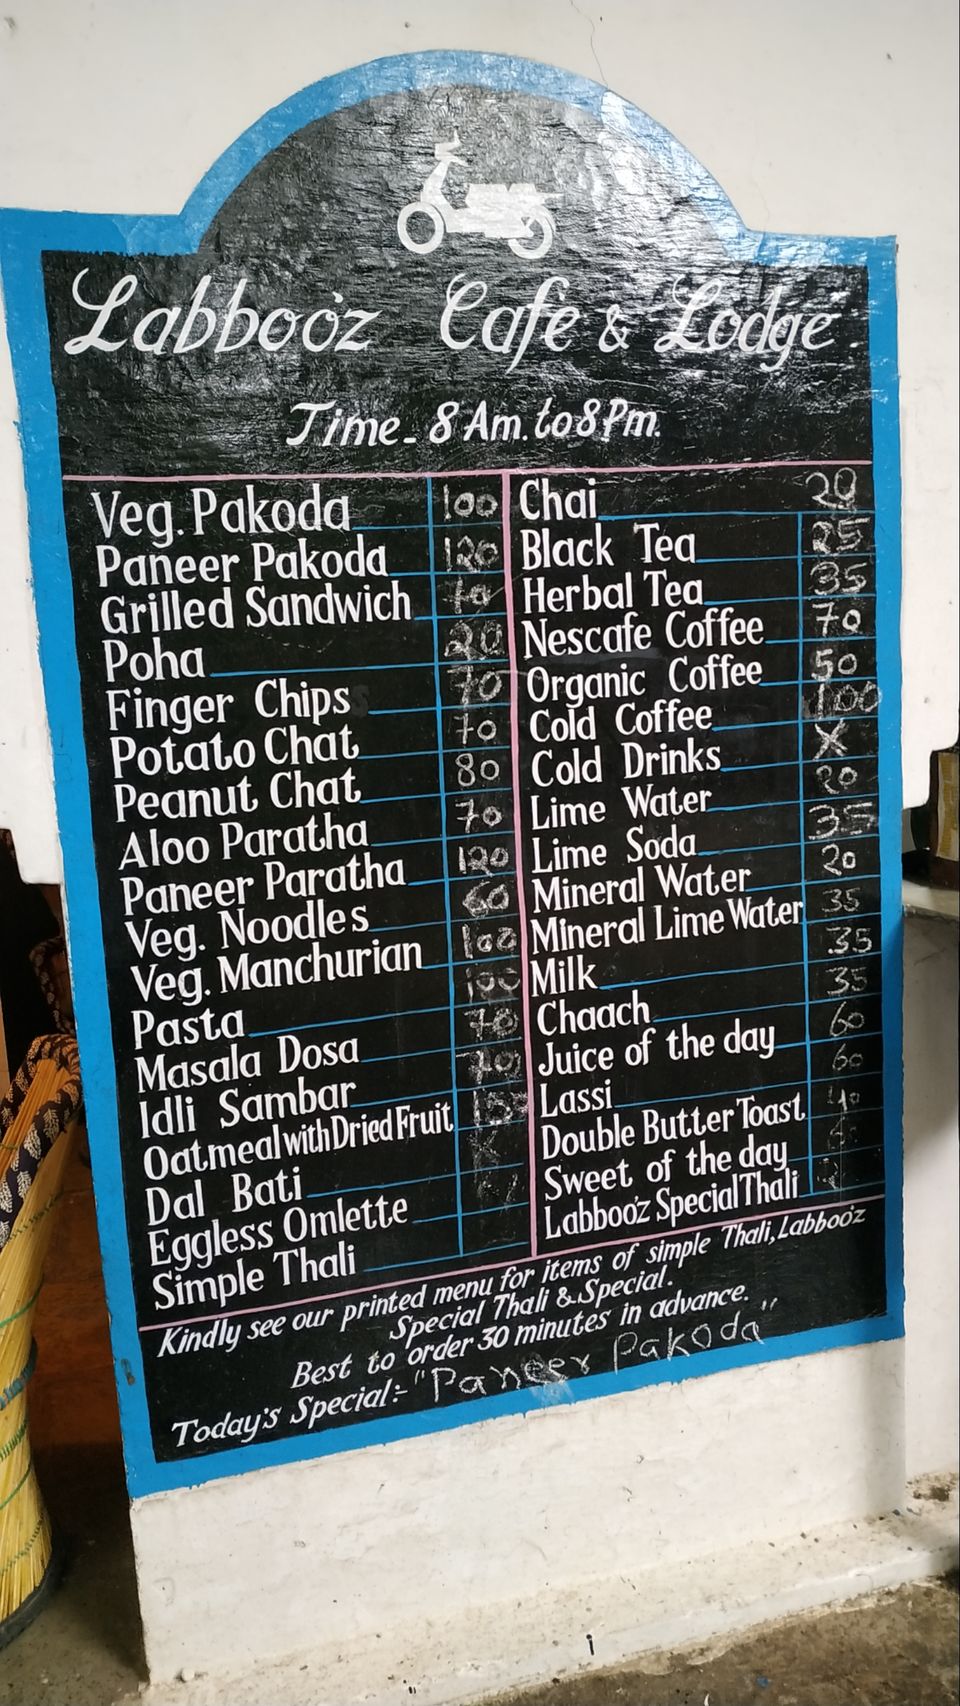 Labbooz Cafe & Lodge.
Time - 8 Am. to 8 Pm.
Veg. Pakoda 100
Paneer Pakoda 120
Grilled Sandwich 70
Poha 20
Finger Chips 70
Potato Chat 70
Peanut Chat 80
Aloo Paratha 70
Paneer Paratha 120
Veg. Noodles 60
Veg. Manchurian 100
Pasta 100
Masala Dosa 70
Idli Sambar 70
Oatmeal with Dried Fruit
Dal Bati X
Eggless Omlette
Simple Thali
Chai 20
Black Tea 25
Herbal Tea 35
Nescafe Coffee 70
Organic Coffee 50
Cold Coffee 100
Cold Drinks X
Lime Water 20
Lime Soda 35
Mineral Water 20
Mineral Lime Water 35
Milk 35
Chaach 35
Juice of the day 60
Lassi 60
Double Butter Toast 40
Sweet of the day
Labbooz Special Thali
Kindly see our printed menu for items of simple Thali, Labbooz
Special Thali & Special.
Best to order 30 minutes in advance.
Today's Special:- "Paneer Pakoda"